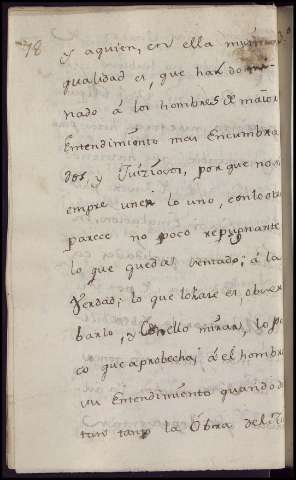 78
y aquien, en ella misma
qualidad es, que han domi-
nado á los hombres de maior
Entendimiento mas Encumbra
dos, y Juiziosos, porque no si
empre unen lo uno, con lo otro
parece no poco repugnante
lo que queda sentado; á la
Verdad; lo que lo haze es obser
barlo, y Con ello miran, lo po
co que aprobecha, á el hombre
su Entendimiento quando
tanto la Obra del